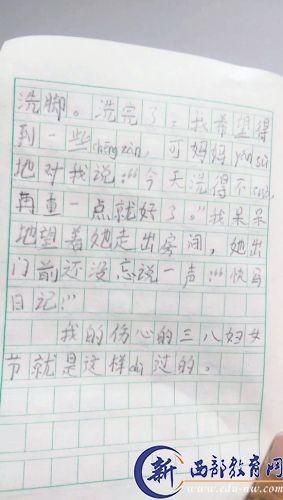 洗脚。洗完了，我希望得
到一些chēng zàn，可妈妈yán sù
地对我说：“今天洗得不cuò，
再重一点就好了。”我呆呆
地望着她走出房间，她出
门前还没忘说一声：“快写
日记！”
我的伤心的三八妇女
节就是这样dù过的。
新 西部教育网
www.edu-nw.com